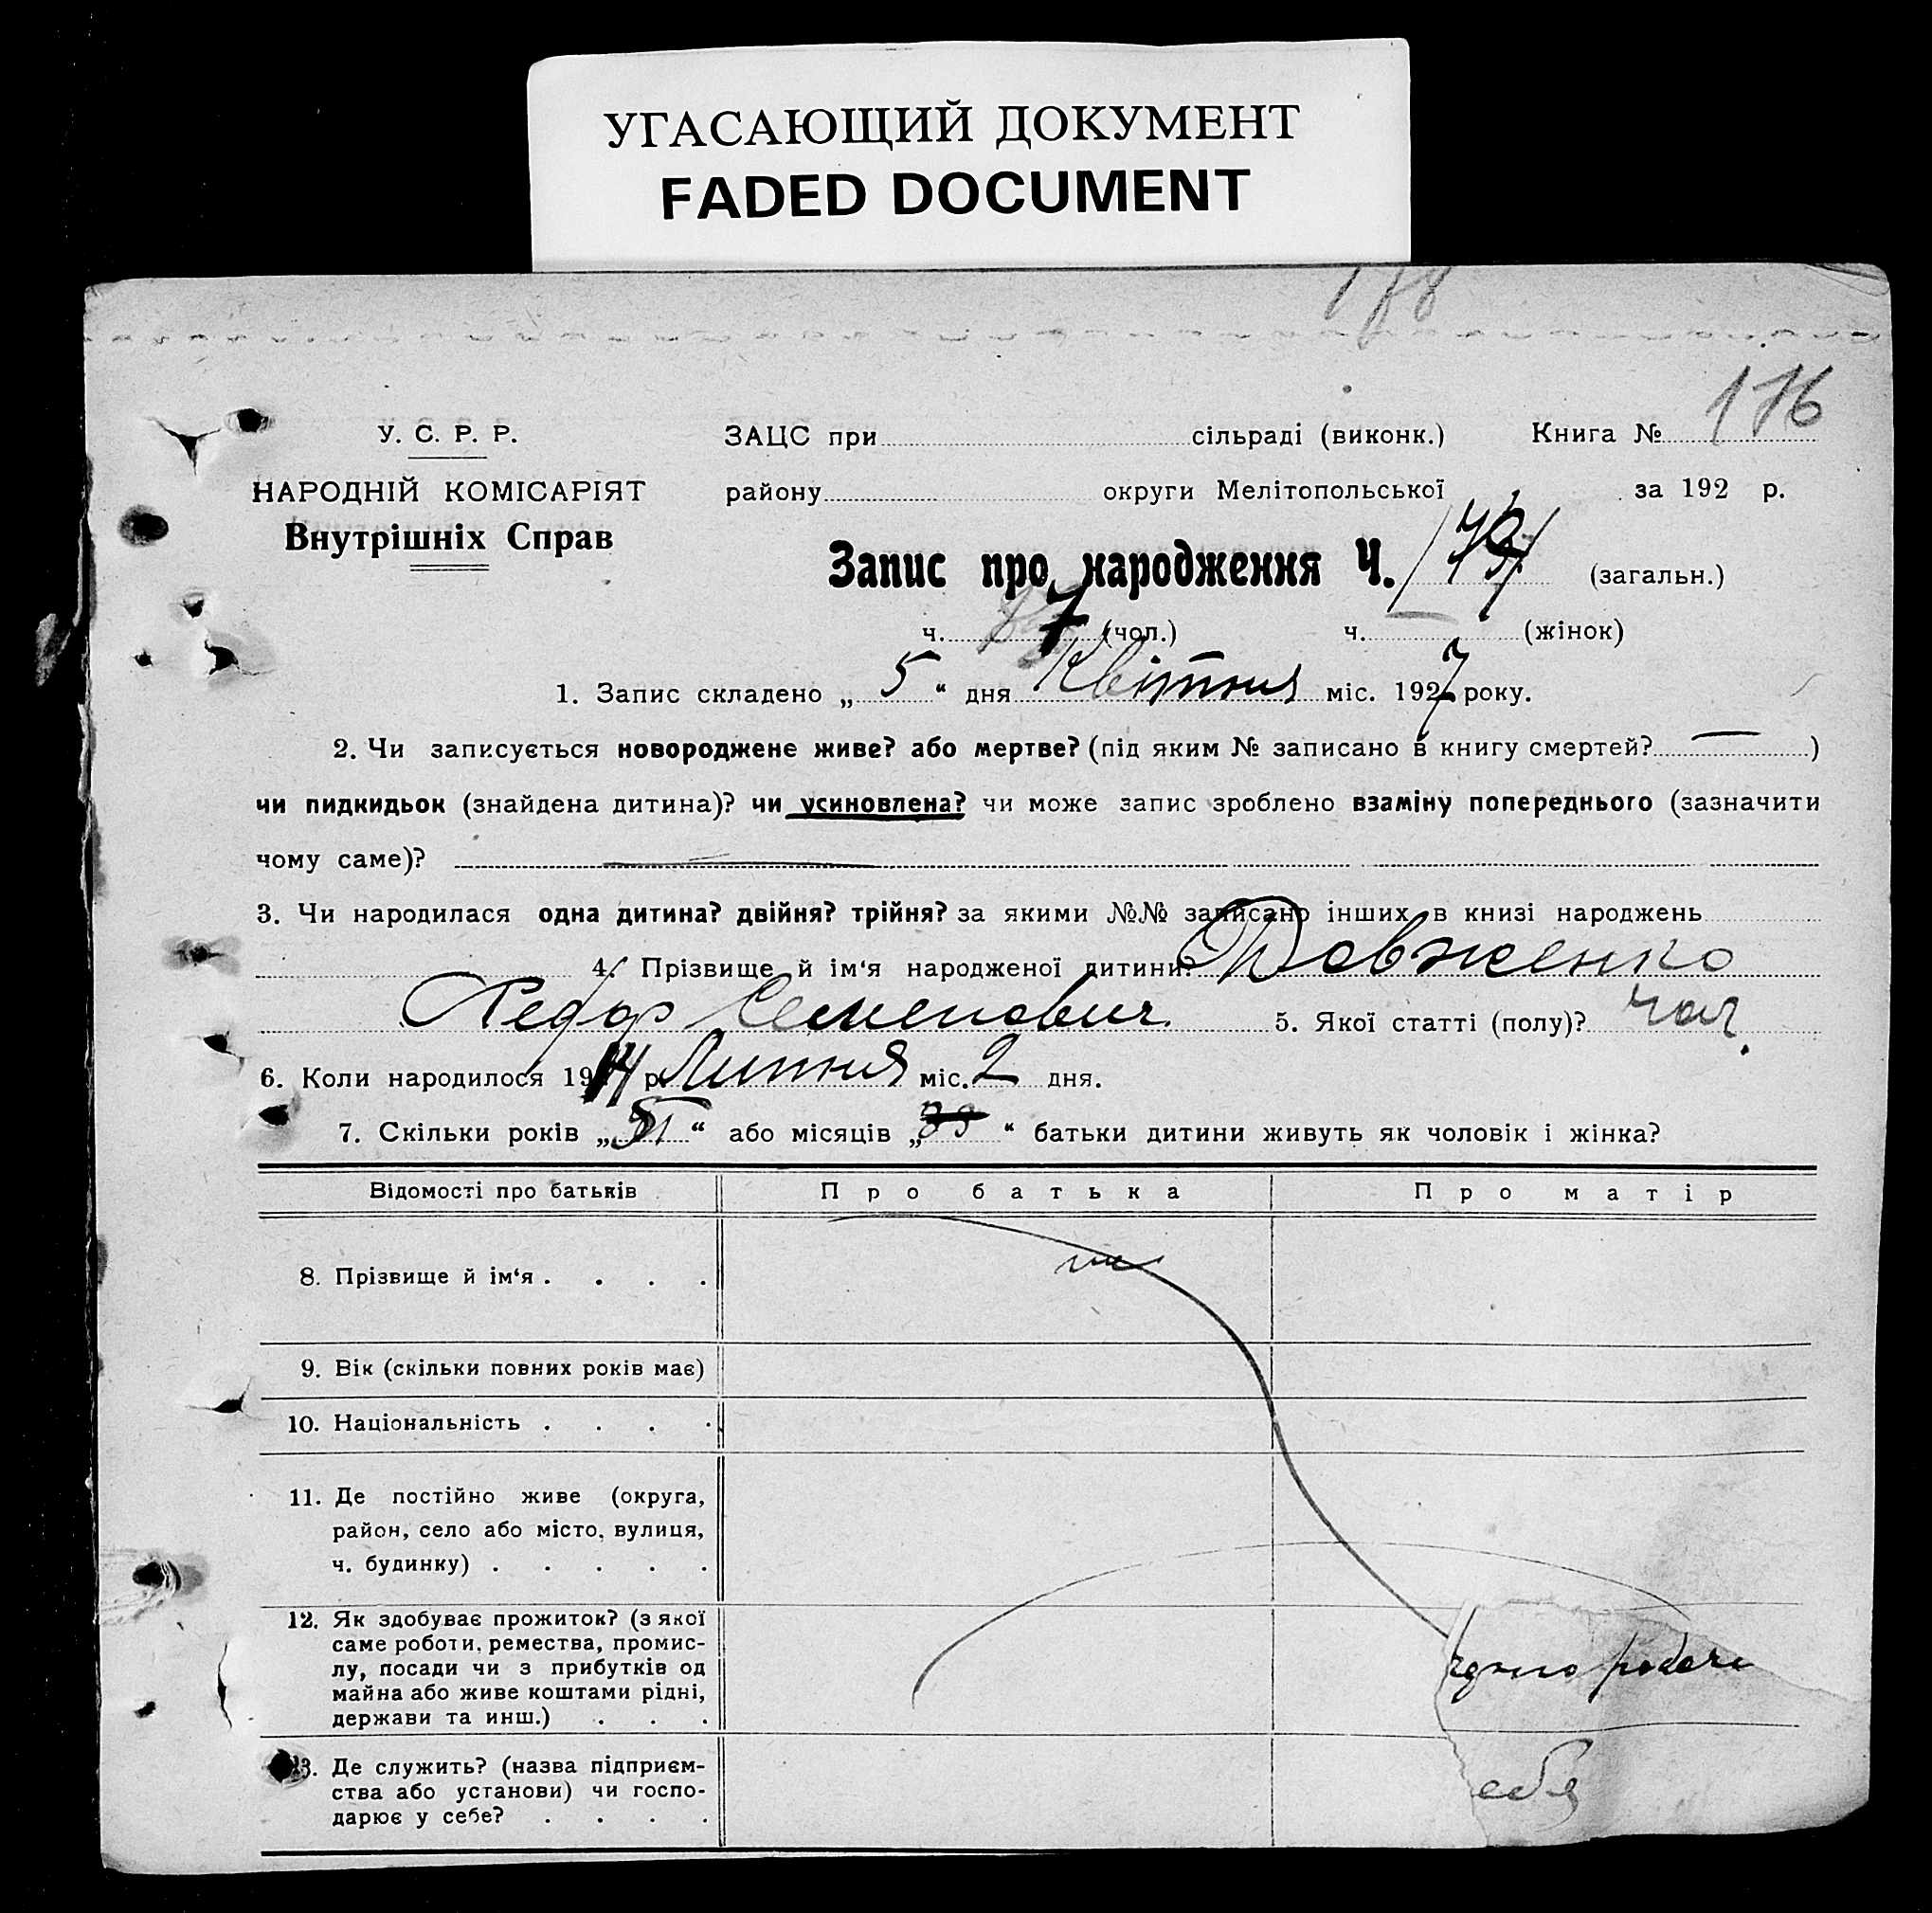 УГАСАЮЩИЙ ДОКУМЕНТ
FADED DOCUMENT
178
176
У. С. Р. Р.
ЗАЦС при сільраді (виконк.) Книга №
НАРОДНІЙ КОМІСАРІЯТ
району округи Мелітопольської за 192 р.
Внутрішніх Справ
Запис про народження Ч. (загальн.)
ч. 7 (чол.) ч. (жінок)
1. Запис складено „ 5 “ дня Квітня міс. 1927 року.
2. Чи записується новороджене живе? або мертве? (під яким № записано в книгу смертей? — )
чи пидкидьок (знайдена дитина)? чи усиновлена? чи може запис зроблено взаміну попереднього (зазначити
чому саме)? —
3. Чи народилася одна дитина? двійня? трійня? за якими №№ записано інших в книзі народжень
4. Прізвище й ім‘я народженої дитини? Довженко
Федор Семенович 5. Якої статті (полу)? чол.
6. Коли народилося 1914 р. Липня міс. 2 дня.
7. Скільки років „ “ або місяців „ “ батьки дитини живуть як чоловік і жінка?
Відомості про батьків Про батька Про матір
8. Прізвище й ім‘я . . . .
9. Вік (скільки повних років має)
10. Національність . . . .
11. Де постійно живе (округа,
район, село або місто, вулиця,
ч. будинку) . . . . .
12. Як здобуває прожиток? (з якої
саме роботи, ремества, промис-
лу, посади чи з прибутків од
майна або живе коштами рідні,
держави та инш.) . . .
13. Де служить? (назва підприєм-
ства або установи) чи госпо-
дарює у себе? . . . .
себя